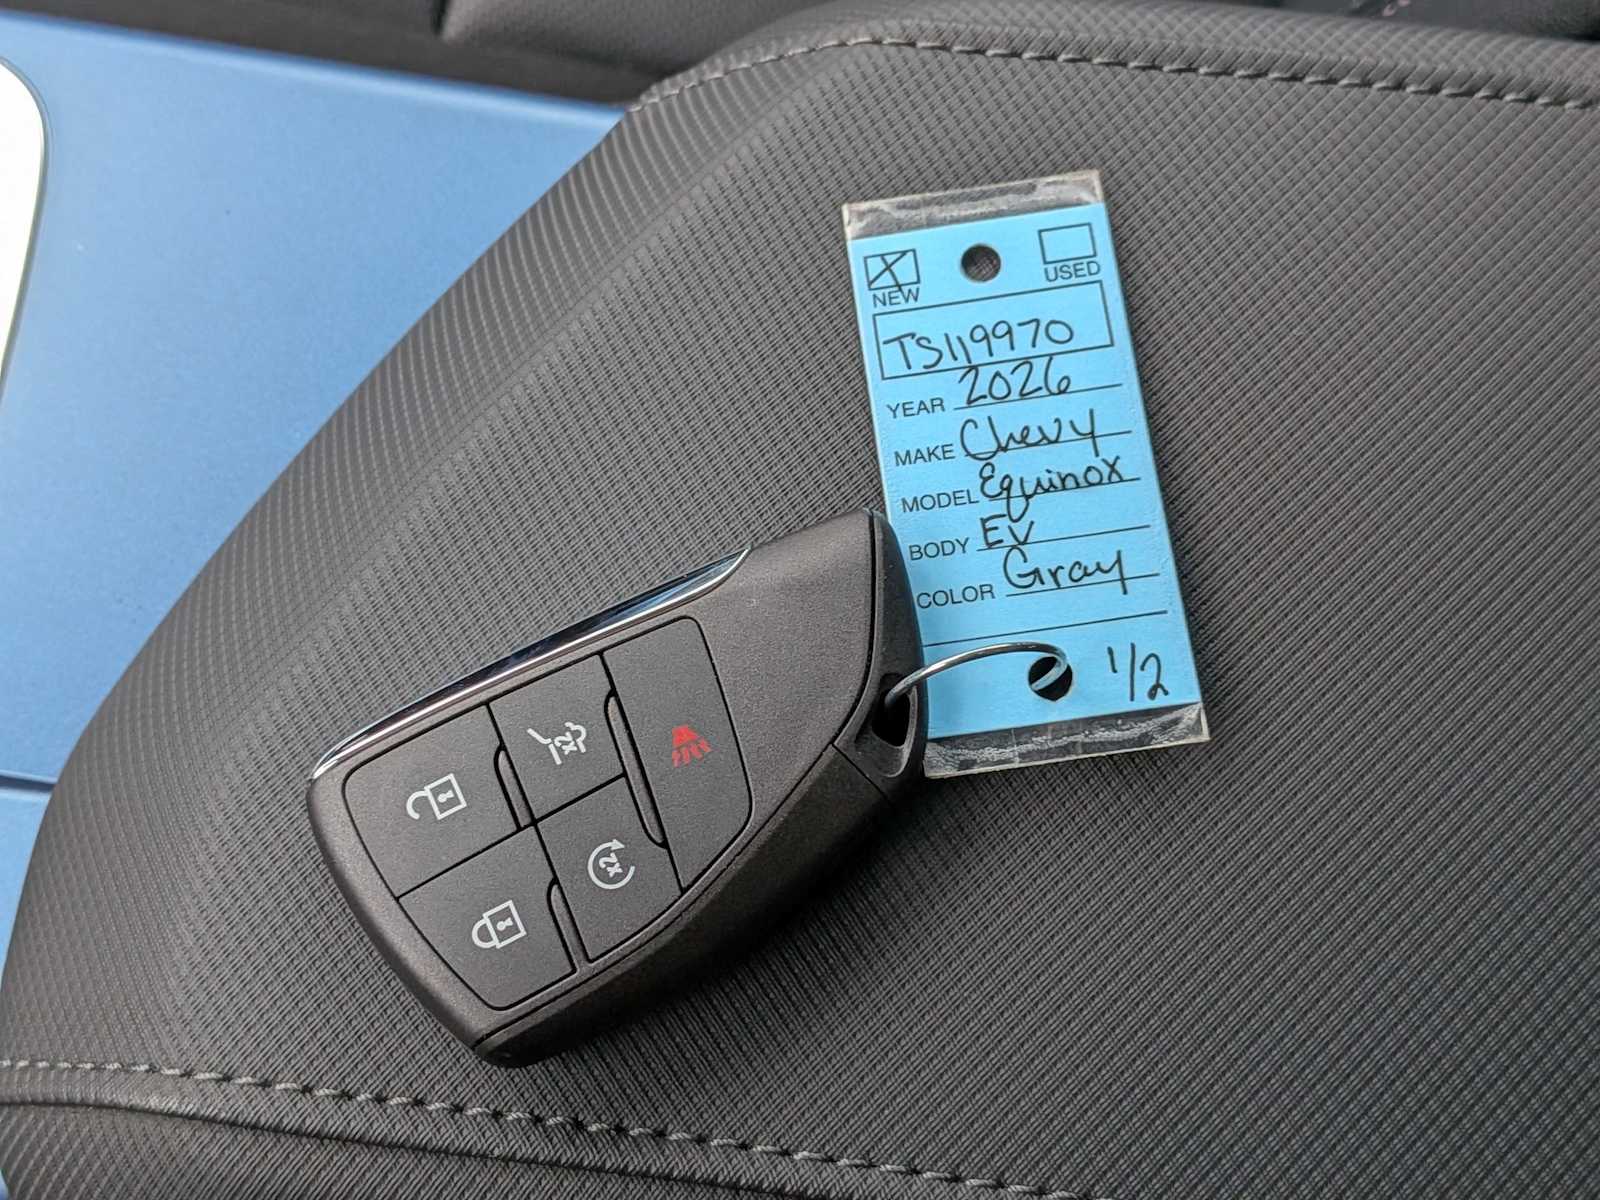 NEW USED
TS119970
YEAR 2026
MAKE Chevy
MODEL Equinox
BODY EV
COLOR Gray
1/2
x2
x2